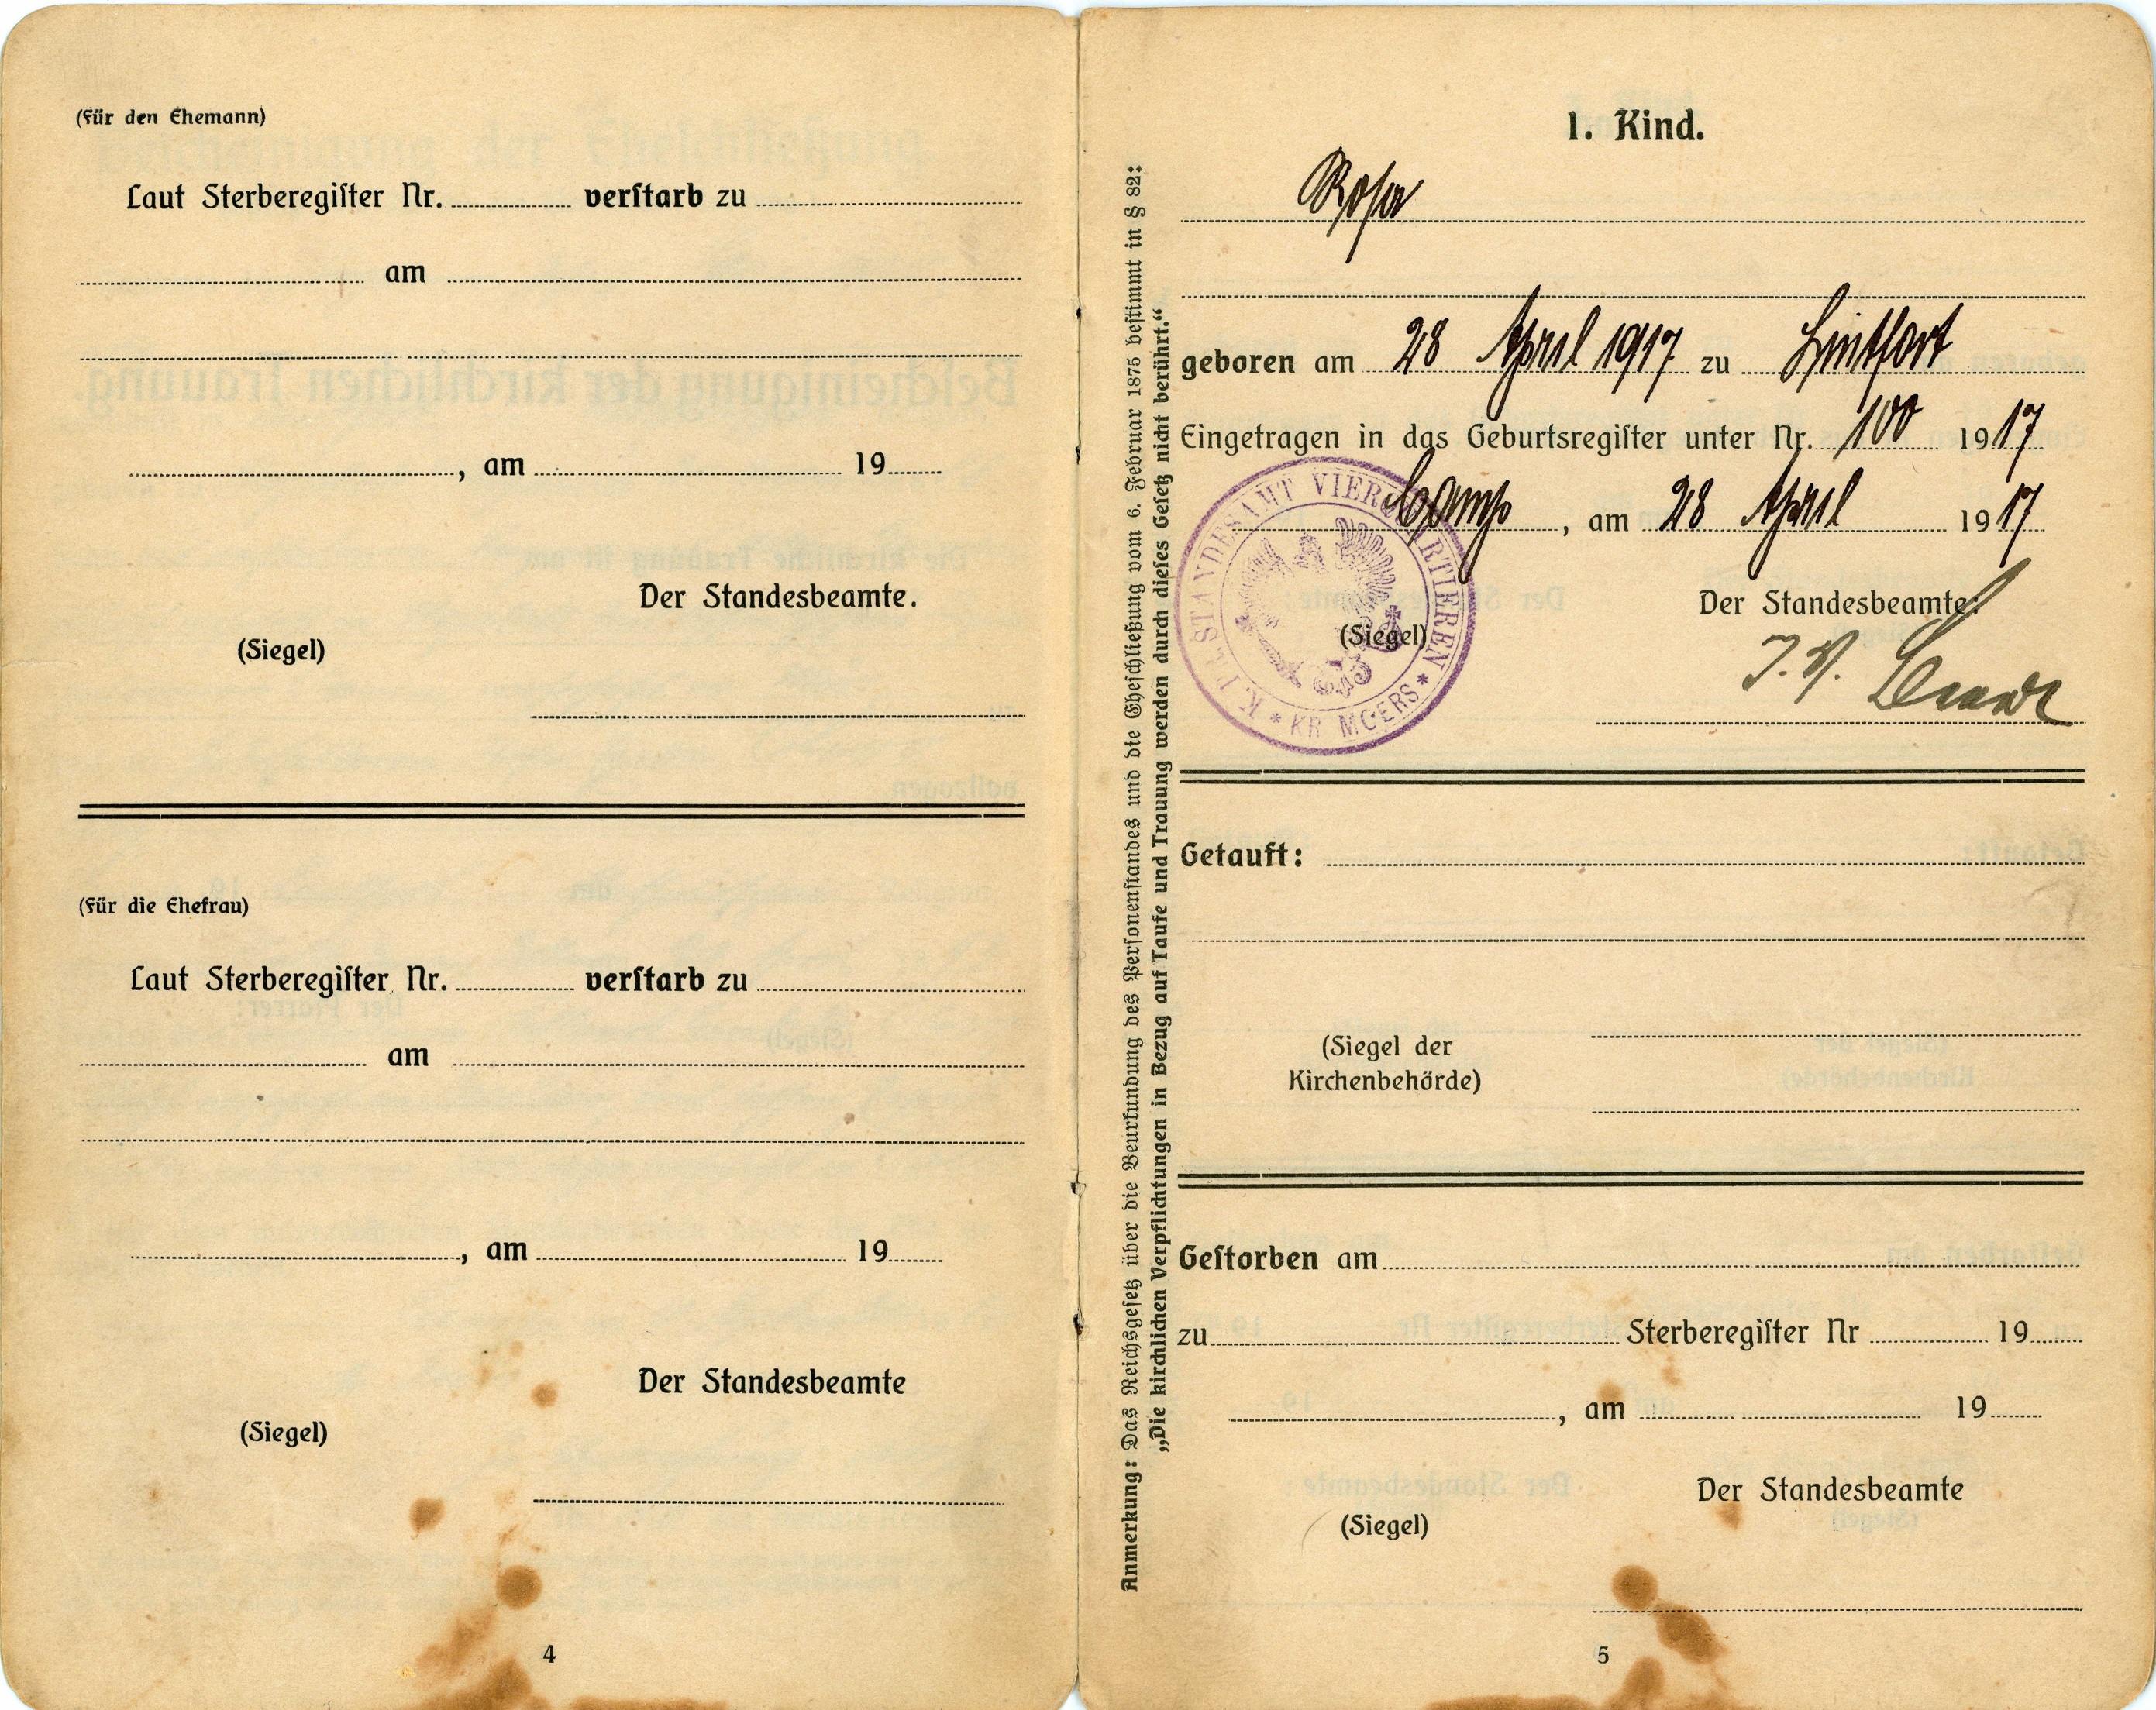 (Für den Ehemann)
Laut Sterberegiſter Nr. verſtarb zu
am
, am 19
Der Standesbeamte.
(Siegel)
(Für die Ehefrau)
Laut Sterberegiſter Nr. verſtarb zu
am
, am 19
Der Standesbeamte
(Siegel)
4
Anmerkung: Das Reichsgeſetz über die Beurkundung des Perſonenſtandes und die Eheſchließung vom 6. Februar 1875 beſtimmt in § 82:
„Die kirchlichen Verpflichtungen in Bezug auf Taufe und Trauung werden durch dieſes Geſetz nicht berührt.“
1. Kind.
Roſa
geboren am 28 April 1917 zu Lintfort
Eingetragen in das Geburtsregiſter unter Nr. 100 1917
Camp, am 28 April 1917
K. PR. STANDESAMT VIERQUARTIEREN
* KR MOERS *
Der Standesbeamte:
(Siegel)
J. V.
Getauft:
(Siegel der
Kirchenbehörde)
Geſtorben am
zu Sterberegiſter Nr 19
, am 19
Der Standesbeamte
(Siegel)
5